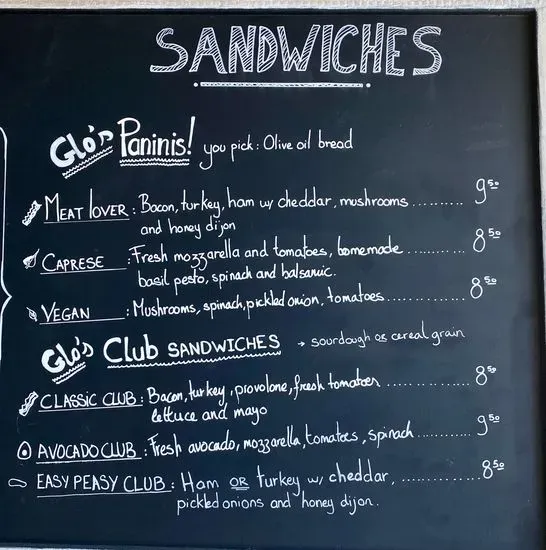 SANDWICHES
Glo's Paninis! you pick: Olive oil bread
MEAT LOVER: Bacon, turkey, ham w/ cheddar, mushrooms .......... 9⁵⁰
and honey dijon
CAPRESE : Fresh mozzarella and tomatoes, homemade .......... 8⁵⁰
basil pesto, spinach and balsamic.
VEGAN : Mushrooms, spinach, pickled onion, tomatoes .......... 8⁵⁰
Glo's Club SANDWICHES → sourdough or cereal grain
CLASSIC CLUB: Bacon, turkey, provolone, fresh tomatoes .......... 8⁵⁰
lettuce and mayo
AVOCADO CLUB: Fresh avocado, mozzarella, tomatoes, spinach .......... 9⁵⁰
EASY PEASY CLUB: Ham OR turkey w/ cheddar, .......... 8⁵⁰
pickled onions and honey dijon.